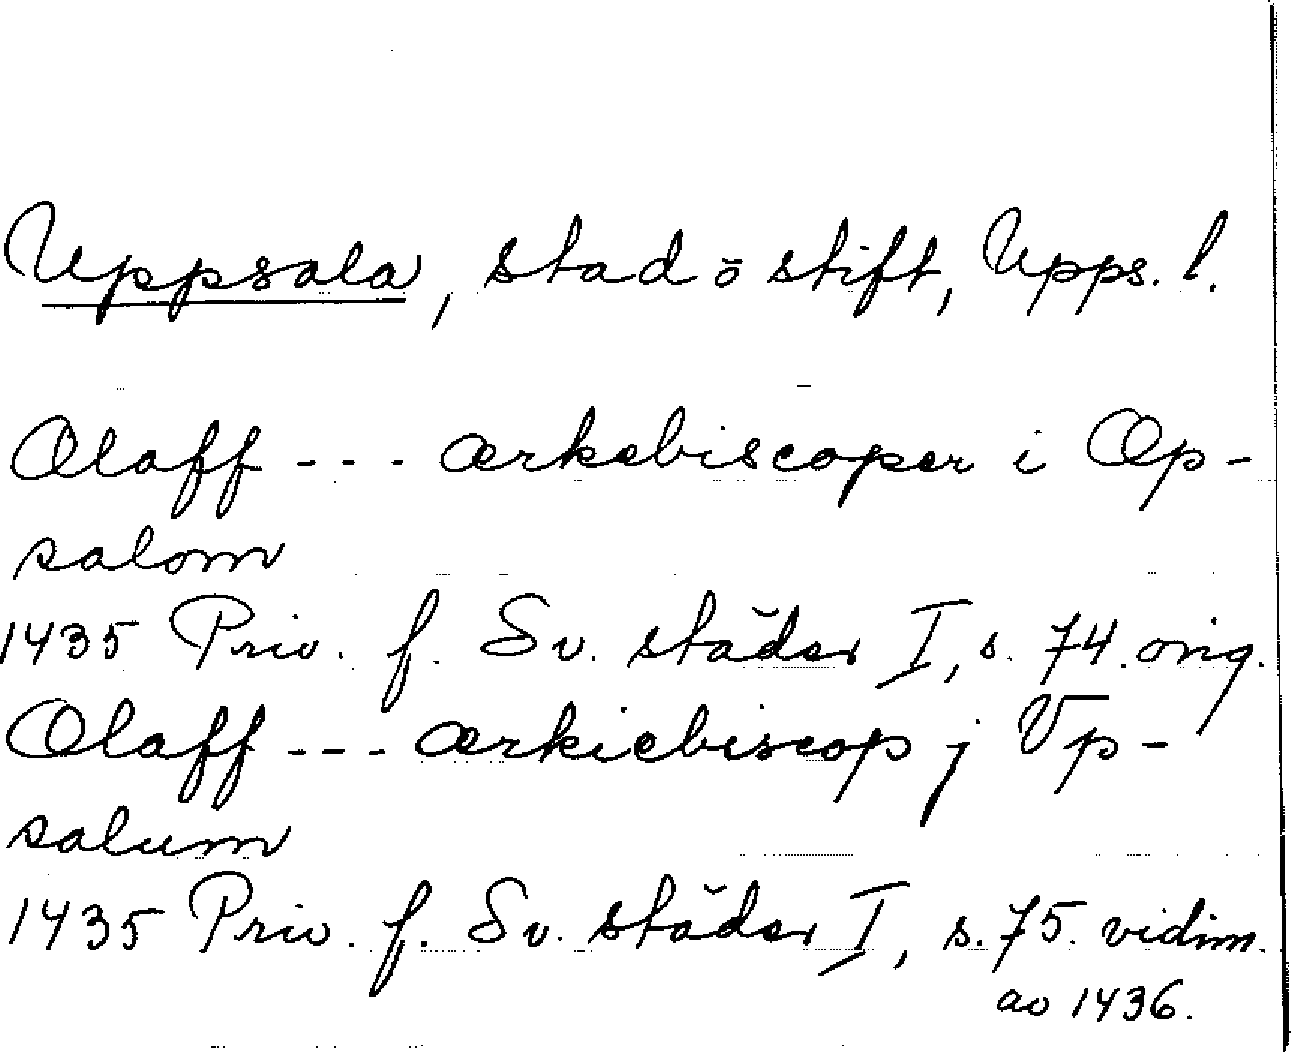 Uppsala, stad o stift, Upps. l.
Olaff --- ærkebiscoper i Op-
salom
1435 Priv. f. Sv. städer I, s. 74. orig.
Olaff --- ærkiebiscop j Vp-
salum
1435 Priv. f. Sv. städer I, s. 75. vidim.
av 1436.